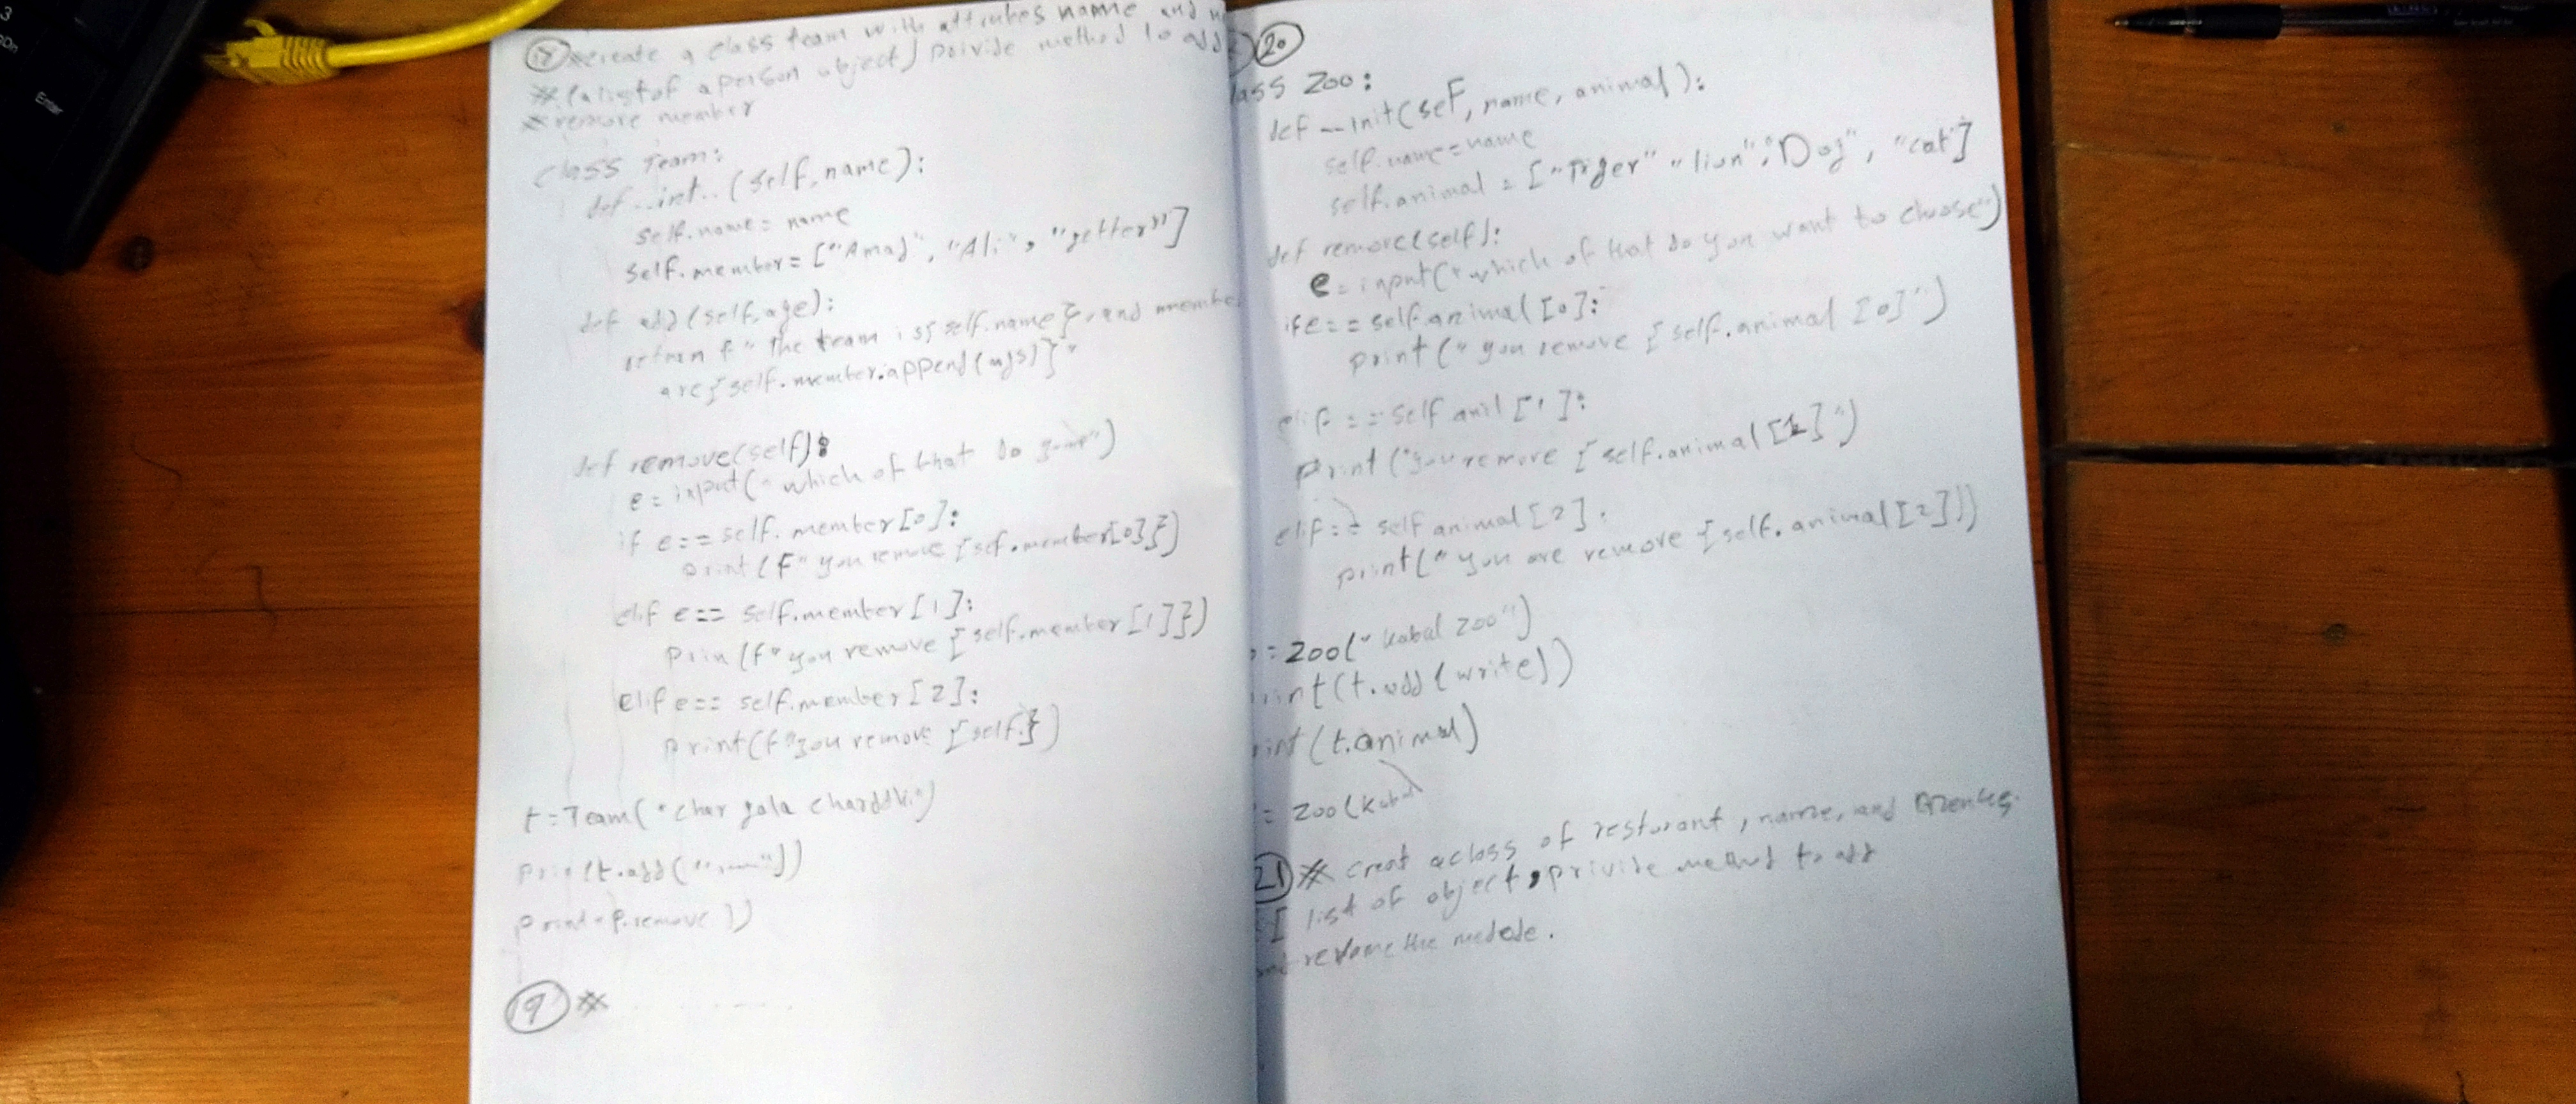 create a class team with attributes name and
# (a list of a person object) poivide method to add
# remove member
class Team:
def__int__(self, name):
self.name = name
self.member = ["Amad", "Ali", "yetter"]
def add(self, age):
return f" the team is {self.name}, and member
are {self.member.append(ajs)}"
def remove(self):
e = input(" which of that do
if e == self.member[0]:
print (f" you remove {self.member[0]})
elif e == self.member[1]:
prin (f" you remove {self.member[1]})
elif e == self.member[2]:
print(f" you remove {self.})
t = Team("char gala
print(t.add("
print t.remove())
19 #
20
lass Zoo:
def -init(self, name, animal):
self.name = name
self.animal = ["Tiger" "lion", "Dog", "cat"]
def remove(self):
e = input(" which of that do you want to choose")
if e == self.animal[0]:
print (" you remove { self.animal [0]")
elif == self anil [1]:
print ("you remove { self.animal [1]")
elif == self animal [2]:
print (" you are remove { self.animal [2]))
= zoo (" kabal zoo")
rint (t.add (write))
rint (t.animal)
= zoo (kabal)
21 # creat a class of resturant, name, and
list of object, privide method to add
and remove the